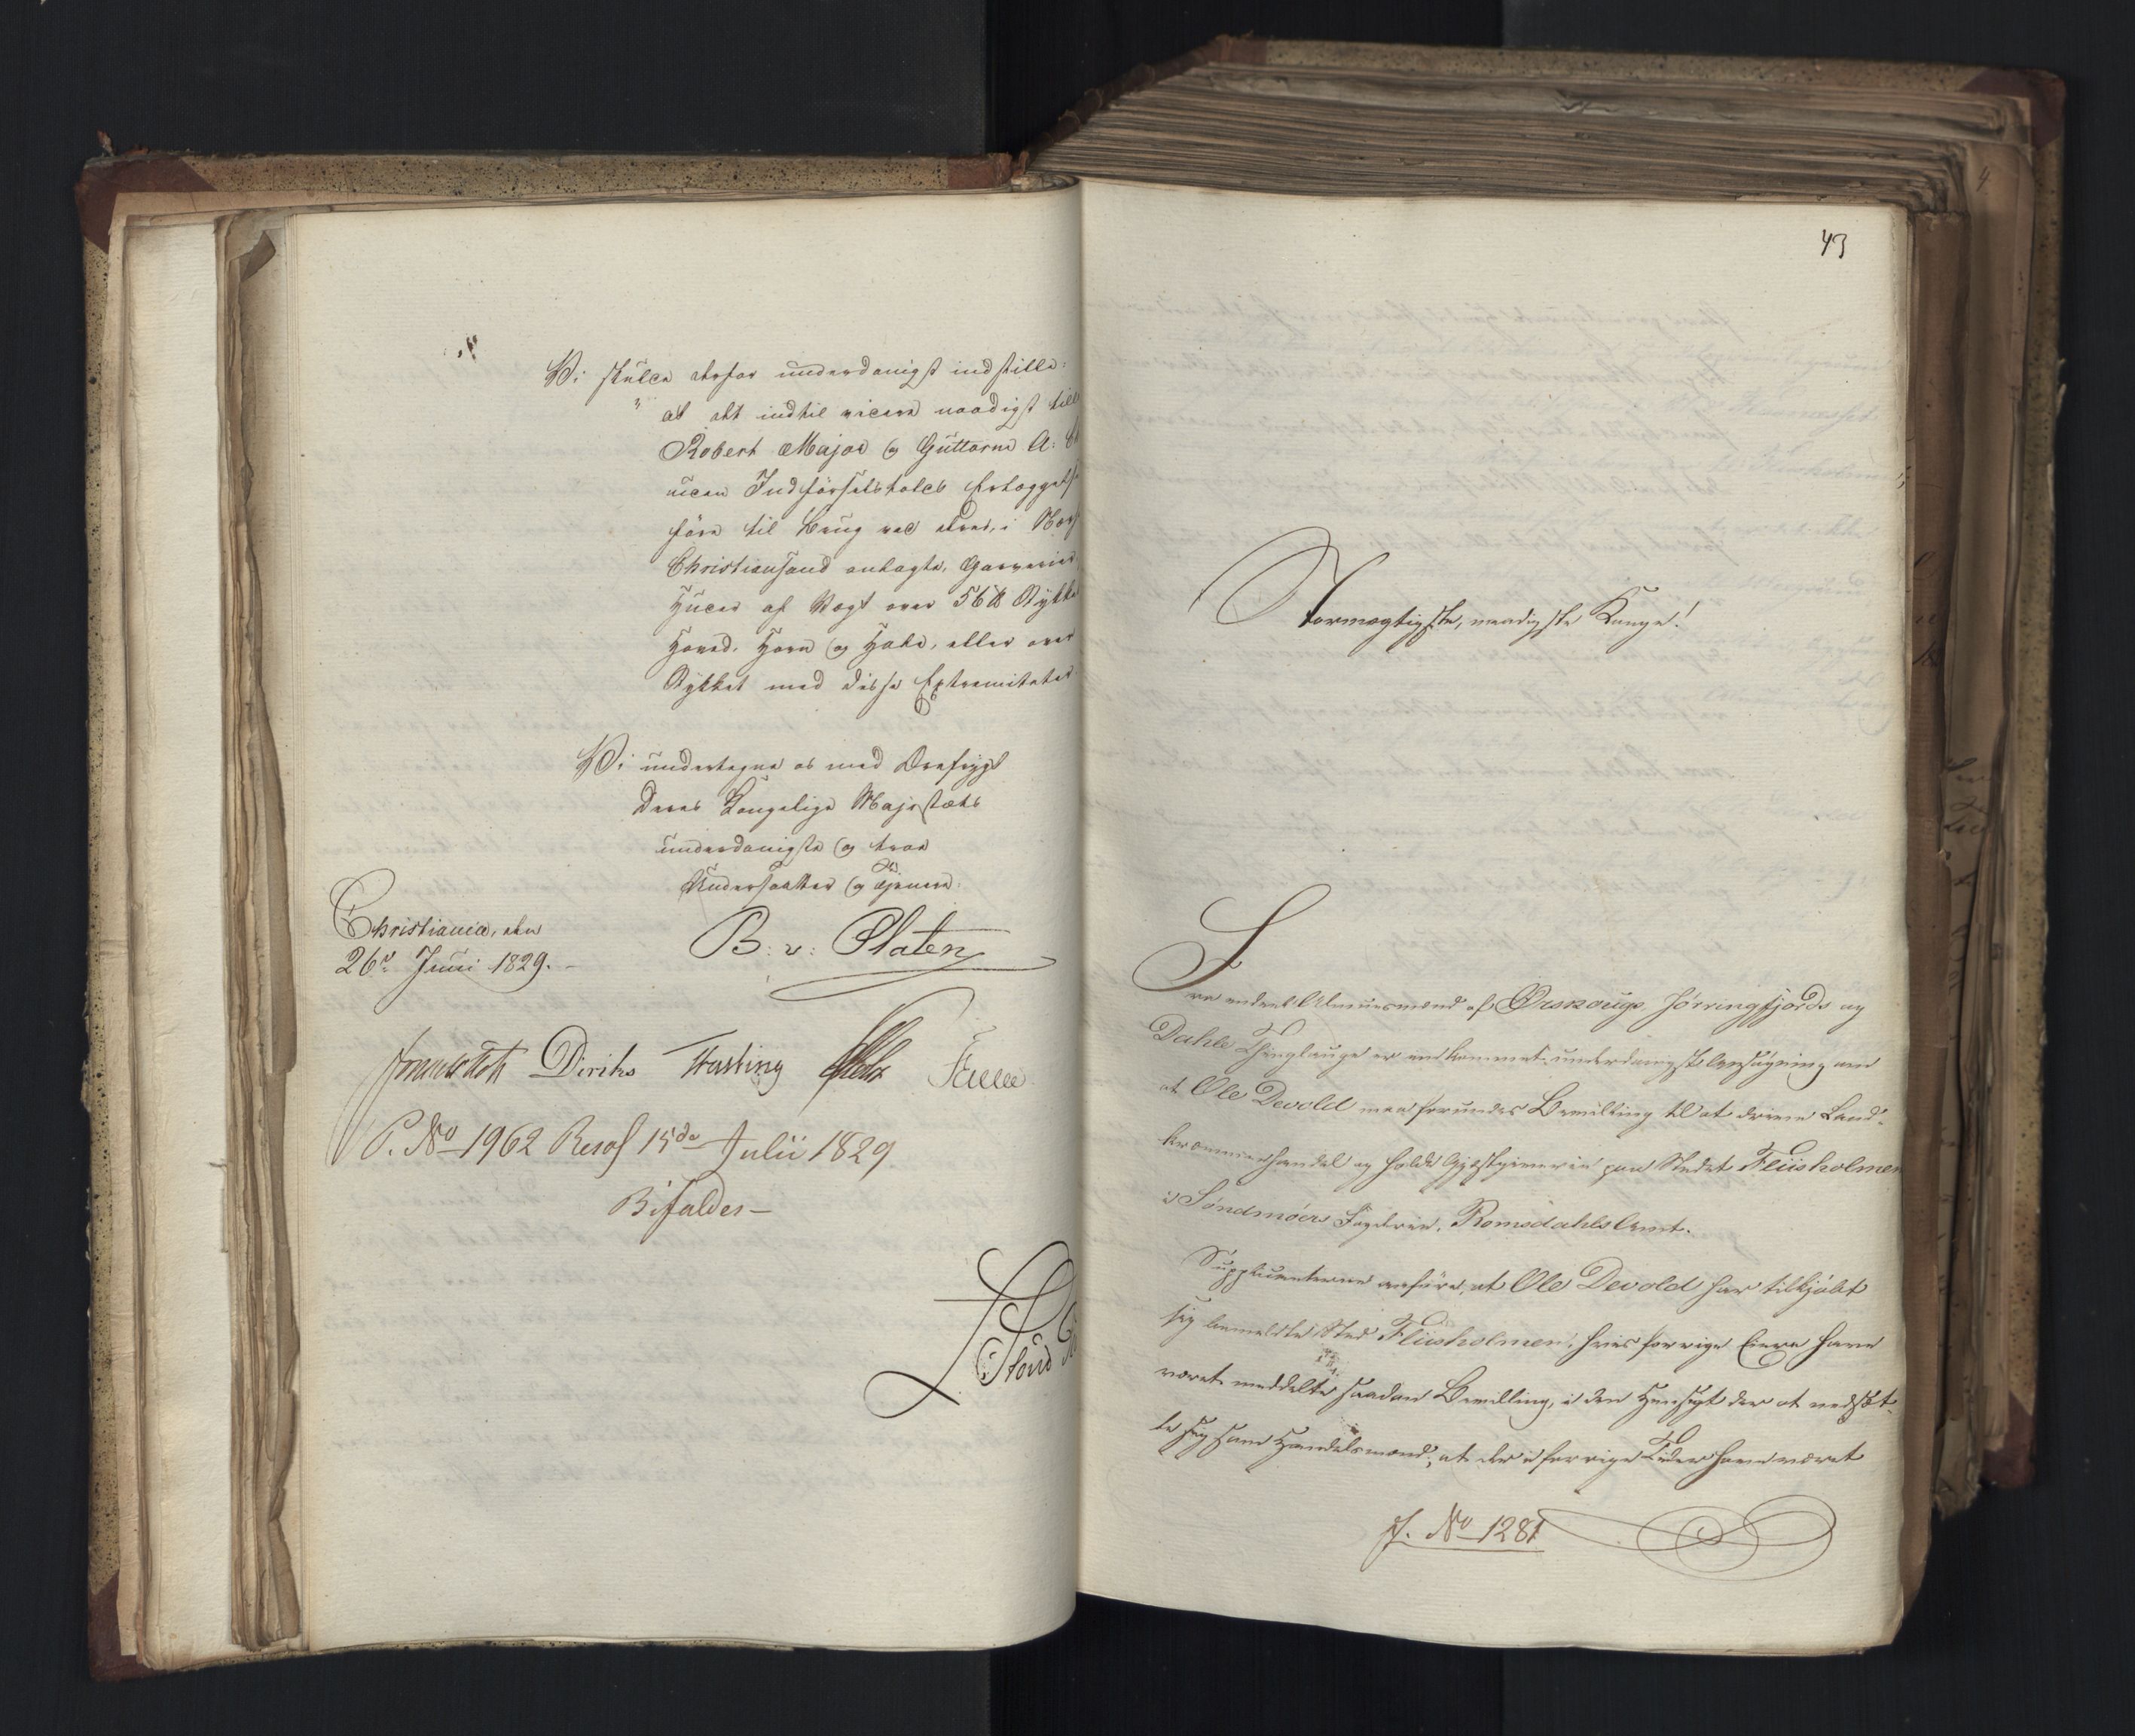 Vi skulle derfor underdanigst indstille:
at det indtil videre naadigst till
Robert Major og Guttorm A:
uden Indførselstolds Erlæggelse
føre til Brug ved deres, i
Christiansand anlagte, Garverier
Huder af Vægt over 56 ℔ Stykket
Hoved, Horn og Hale, eller over
Stykket med disse Extremiteter
Vi undertegne os med Ærefrygt
Deres Kongelige Majestæts
underdanigste og troe
Undersaatter og Tjenere.
Christiania, den
26de Juni 1829.
B: v: Platen
Diriks
P. No 1962 Resol 15de Julii 1829
Bifaldes
43
Stormægtigste, naadigste Konge!
Fra endeel Almuesmænd af Ørskougs, Hjørringfjords og
Dahle Thinglauge er indkommet underdanigst Ansøgning om
at Ole Devold maa forundes Bevilling til at drive Land-
kræmmerhandel og holde Gjæstgiverie paa Stedet Fliisholmen
i Søndmøers Fogderie, Romsdahls Amt.
Supplicanterne anføre, at Ole Devold har tilkjøbt
sig bemeldte Sted Fliisholmen, hvis forrige Eiere have
været meddelte saadan Bevilling, i den Hensigt der at nedsæt-
te sig som Handelsmand; at der i forrige Tider have været
No 1281